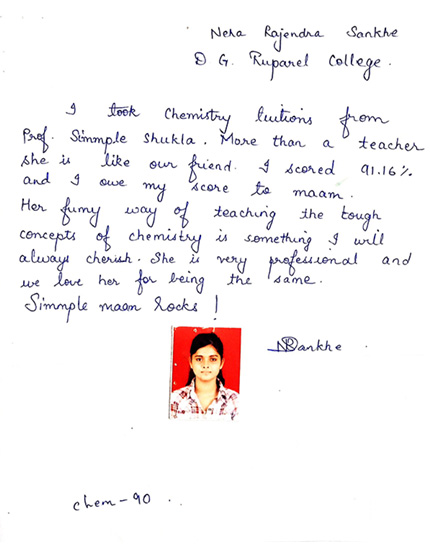 Neha Rajendra Sankhe
D G. Ruparel College.
I took Chemistry tuitions from
Prof. Simmple Shukla. More than a teacher
She is like our friend. I scored 91.16%
and I owe my score to maam.
Her funny way of teaching the tough
concepts of chemistry is something I will
always cherish. She is very professional and
we love her for being the same.
Simmple maam Rocks !
NRSankhe
chem-90